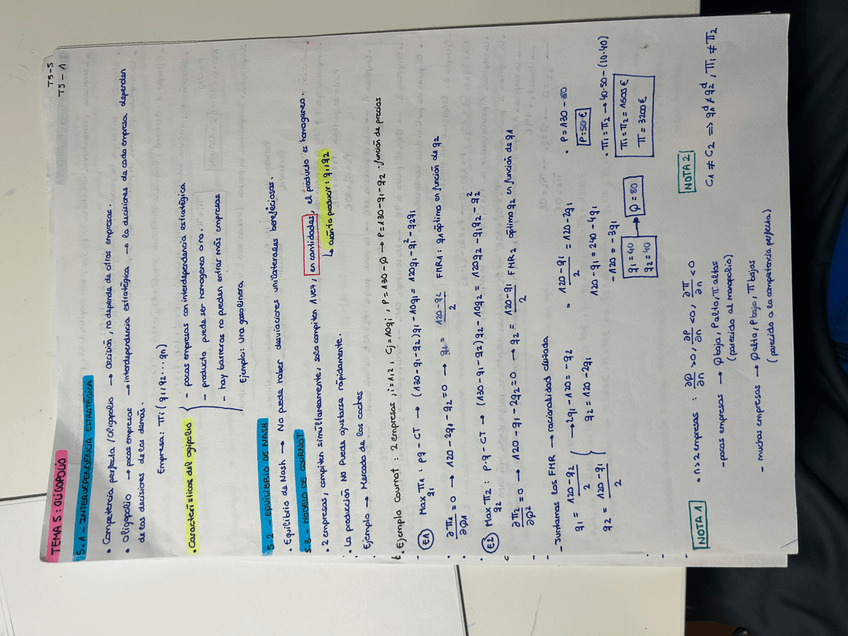 T5-5
T5-1
TEMA 5: OLIGOPOLIO
5.1 - INTERDEPENDENCIA ESTRATÉGICA
• Competencia perfecta / Oligopolio → decisión, no depende de otras empresas.
• Oligopolio → pocas empresas → interdependencia estratégica → la decisiones de cada empresa dependen
de las decisiones de las demás.
Empresa: πi (q1, q2 ... qn)
• Características del ogipolio
- pocas empresas con interdependencia estratégica
- producto puede ser homogeneo o no.
- hay barreras no pueden entrar más empresas
Ejemplo: una gasolinera
5.2 - EQUILIBRIO DE NASH
• Equilibrio de Nash → No puede haber desviaciones unilaterales beneficiosas.
5.3 - MODELO DE COURNOT
• 2 empresas, compiten simultáneamente, solo compiten 1 vez, en cantidades, el producto es homogeneo.
↳ cuánto producir: q1, q2
• La producción NO puede ajustarse rápidamente.
Ejemplo → Mercado de los coches
Ejemplo Cournot: 2 empresas, i=1,2, Cj=10qi, P=130-Q → P=130-q1-q2 función de precios
E1 Max π1: pq - CT → (130-q1-q2)q1-10q1 = 120q1-q1²-q2q1
q1
∂π1/∂q1 = 0 → 120-2q1-q2=0 → q1 = 120-q2/2 FMR1: q1 óptimo en función de q2
E2 Max π2: p·q - CT → (130-q1-q2)q2-10q2 = 120q2-q1q2-q2²
q2
∂π2/∂q2 = 0 → 120-q1-2q2=0 → q2 = 120-q1/2 FMR2 óptimo q2 en función de q1
- Juntamos las FMR → racionalidad cruzada
q1 = 120-q2/2 → 2q1-120=-q2
q2 = 120-2q1
q2 = 120-q1/2
• 120-q1/2 = 120-2q1
120-q1=240-4q1
-120=-3q1
q1=40
q2=40
→ Q=80
• P=130-80
P=50€
• π1=π2 → 40·50-(10·40)
π1=π2=1600€
π=3200€
NOTA 1
• n>2 empresas: ∂Q/∂n >0, ∂P/∂n <0, ∂π/∂n <0
- pocas empresas → Q baja, P alto, π altos
(parecido al monopolio)
- muchas empresas → Q alta, P bajo, π bajas
(parecido a la competencia perfecta)
NOTA 2
C1 ≠ C2 ⇒ q1 ≠ q2, π1 ≠ π2